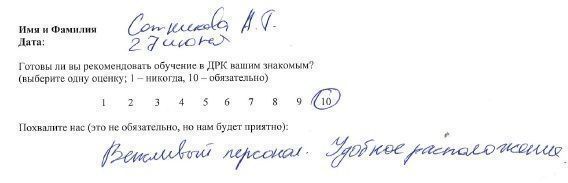 Имя и Фамилия Сотникова А.Г.
Дата: 27 июня
Готовы ли вы рекомендовать обучение в ДРК вашим знакомым?
(выберите одну оценку; 1 – никогда, 10 – обязательно)
1 2 3 4 5 6 7 8 9 10
Похвалите нас (это не обязательно, но нам будет приятно):
Вежливый персонал. Удобное расположение.